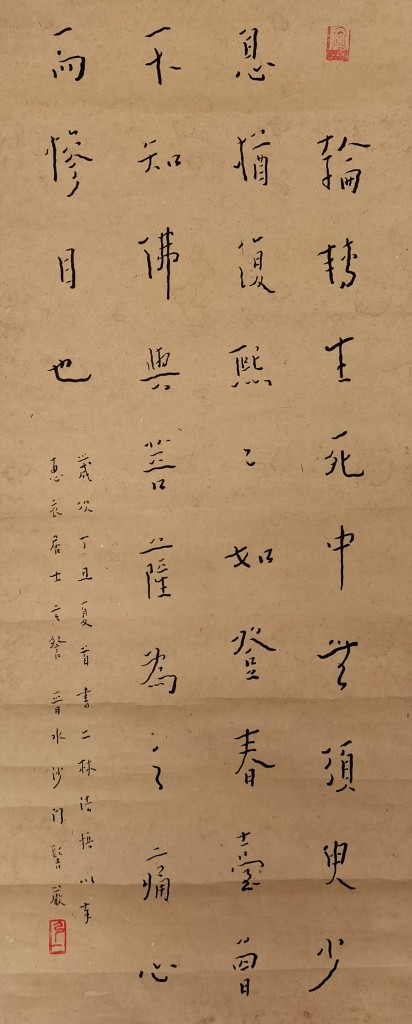 輪轉生死中無須臾少
息猶復熙〻如登春臺曾
不知佛與菩薩為之痛心
而慘目也
歲次丁丑夏首書二林法悟以奉
惠衣居士玄詧 晉水沙門髻嚴